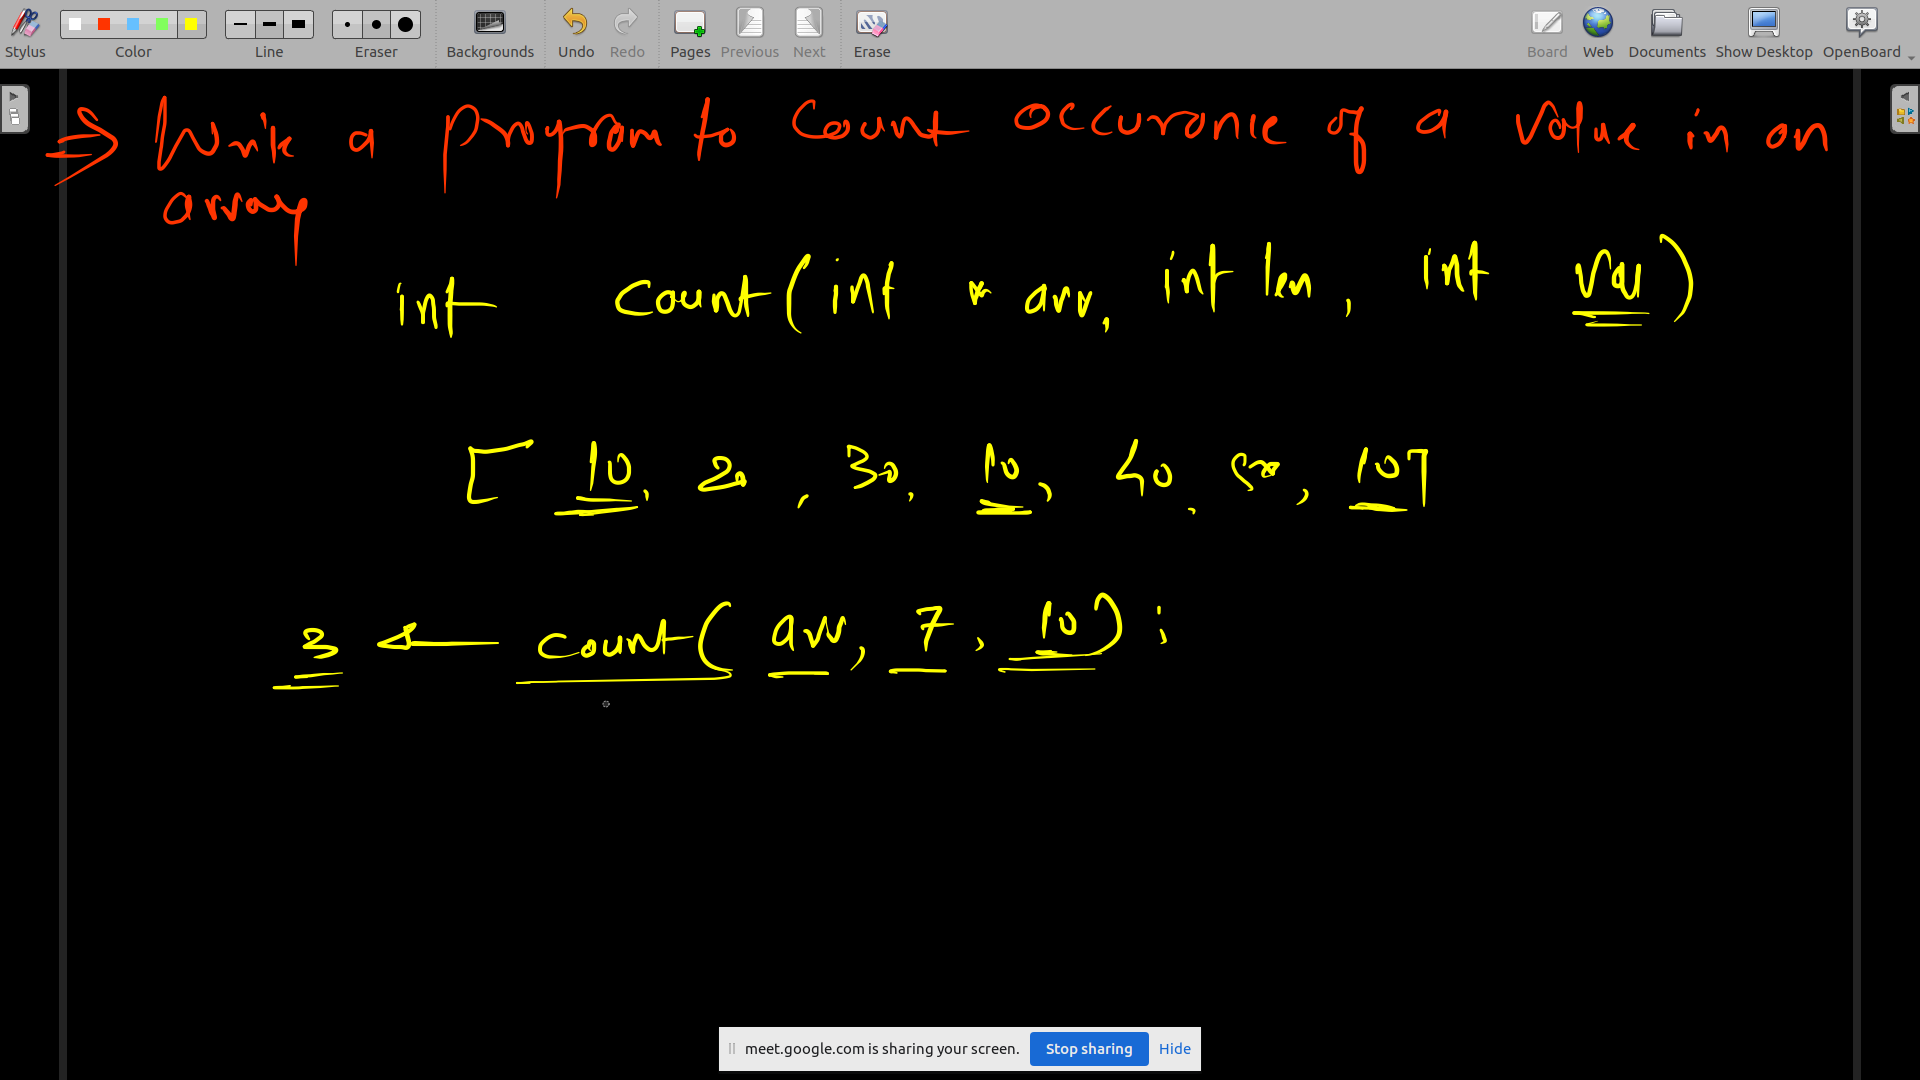 Stylus Color Line Eraser Backgrounds Undo Redo Pages Previous Next Erase Board Web Documents Show Desktop OpenBoard
=> Write a program to count occurance of a value in an
array
int count(int * arr, int len, int val)
[ 10, 20, 30, 10, 40, 50, 10]
3 ← count( arr, 7, 10) ;
meet.google.com is sharing your screen. Stop sharing Hide